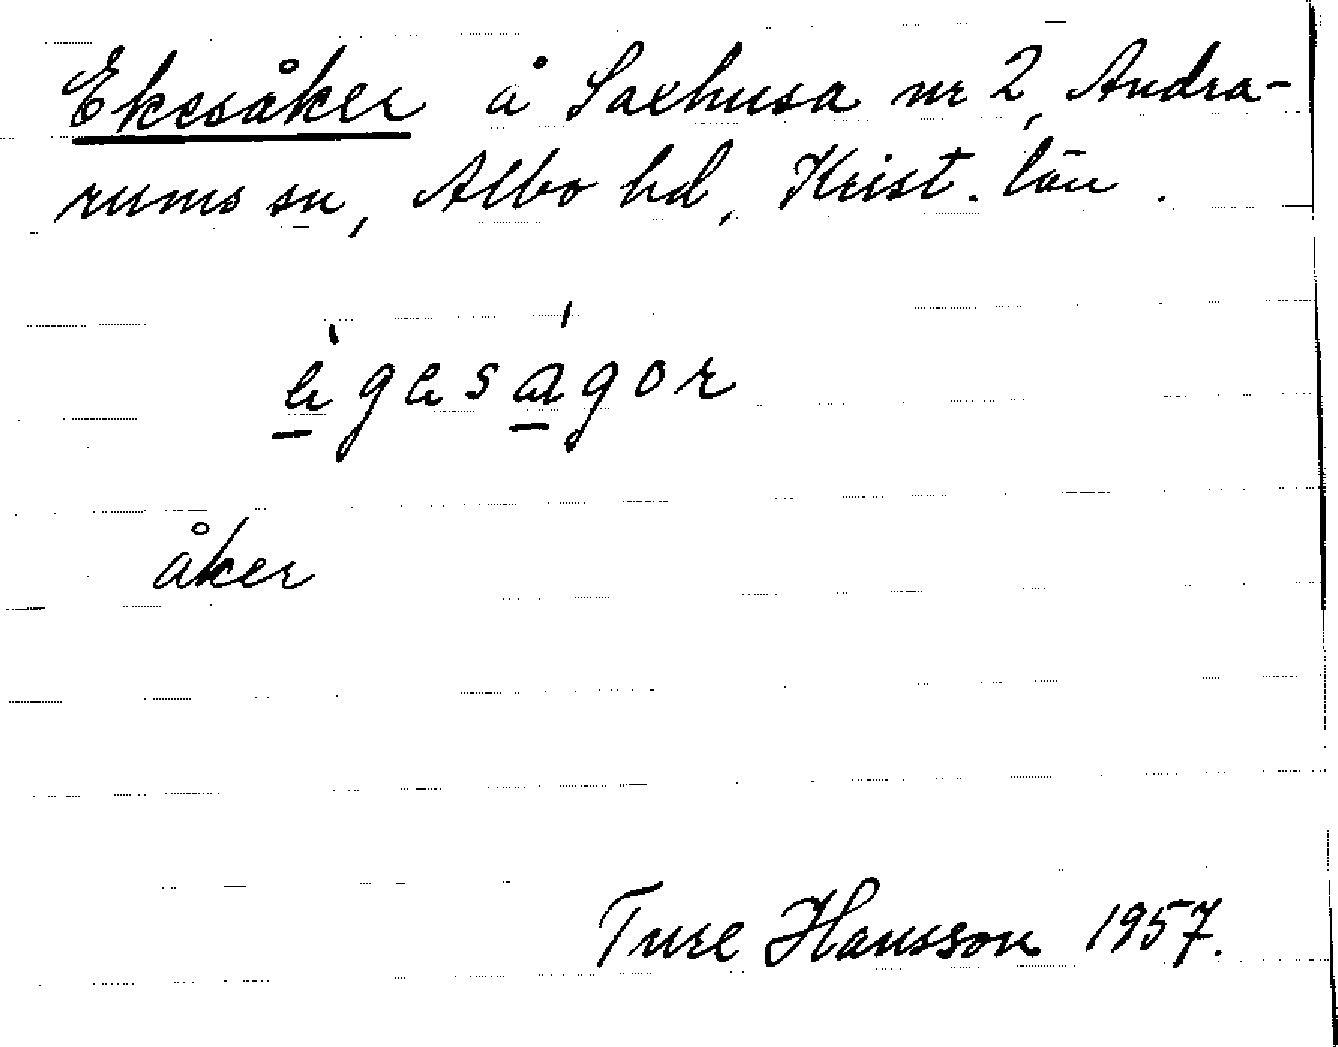 Ekesåker å Saxhusa nr 2, Andra-
rums sn, Albo hd, Krist. län.
ègeságor
åker
Ture Hansson 1957.